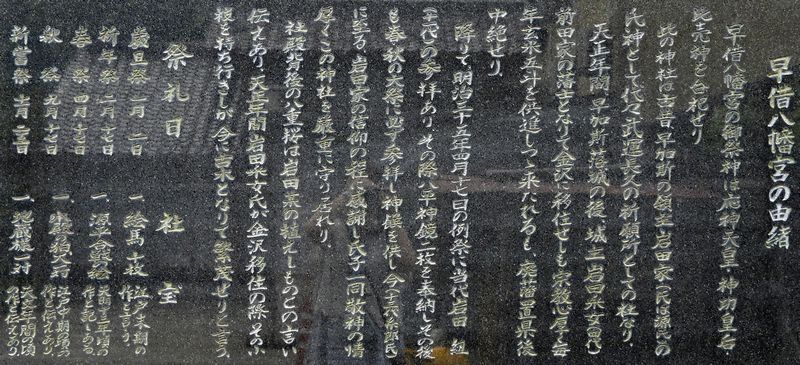 早借八幡宮の由緒
早借八幡宮の御祭神は応神天皇・神功皇后・
比売神を合祀せり
此の神社は古昔早加斯の領主岩田家(氏は源氏)の
氏神として代々武運長久の祈願所としての社なり、
天正年間、早加斯落城の後、城主岩田永女(五代)
前田家の落士となりて金沢に移住せしも宗敬心厚く毎
年玄米五斗を供進しつつ来たれるも、廃藩置県後
中絶せり、
降りて明治三十五年四月十七日の例祭に当代岩田 組
(十代)の参拝あり、その際八平神鏡二枚を奉納、その後
も春秋の大祭には必ず参拝し神饌を供し今(十六代
に至る、岩田家の信仰の程に感謝し氏子一同敬神の情
厚くこの神社を厳重に守りこれり、
社殿背後の八重桜は岩田家の植えしものとの言い
伝えあり、天正年間、岩田永女氏が金沢移住の際、その小
根を持ち行きしが、今に古木となりて繁茂せりと言う、
祭礼日
歳旦祭 一月 一日
祈年祭 二月
春祭 四月十七日
秋祭 九月十七日
新嘗祭
社宝
一、絵馬 十枚 江戸末期の作と言う、
一、源平合戦絵 年頃の作と記しある、
一、 江戸中期頃の作と伝えあり、
一、地蔵様一対 天正年間の頃の作と伝えあり、